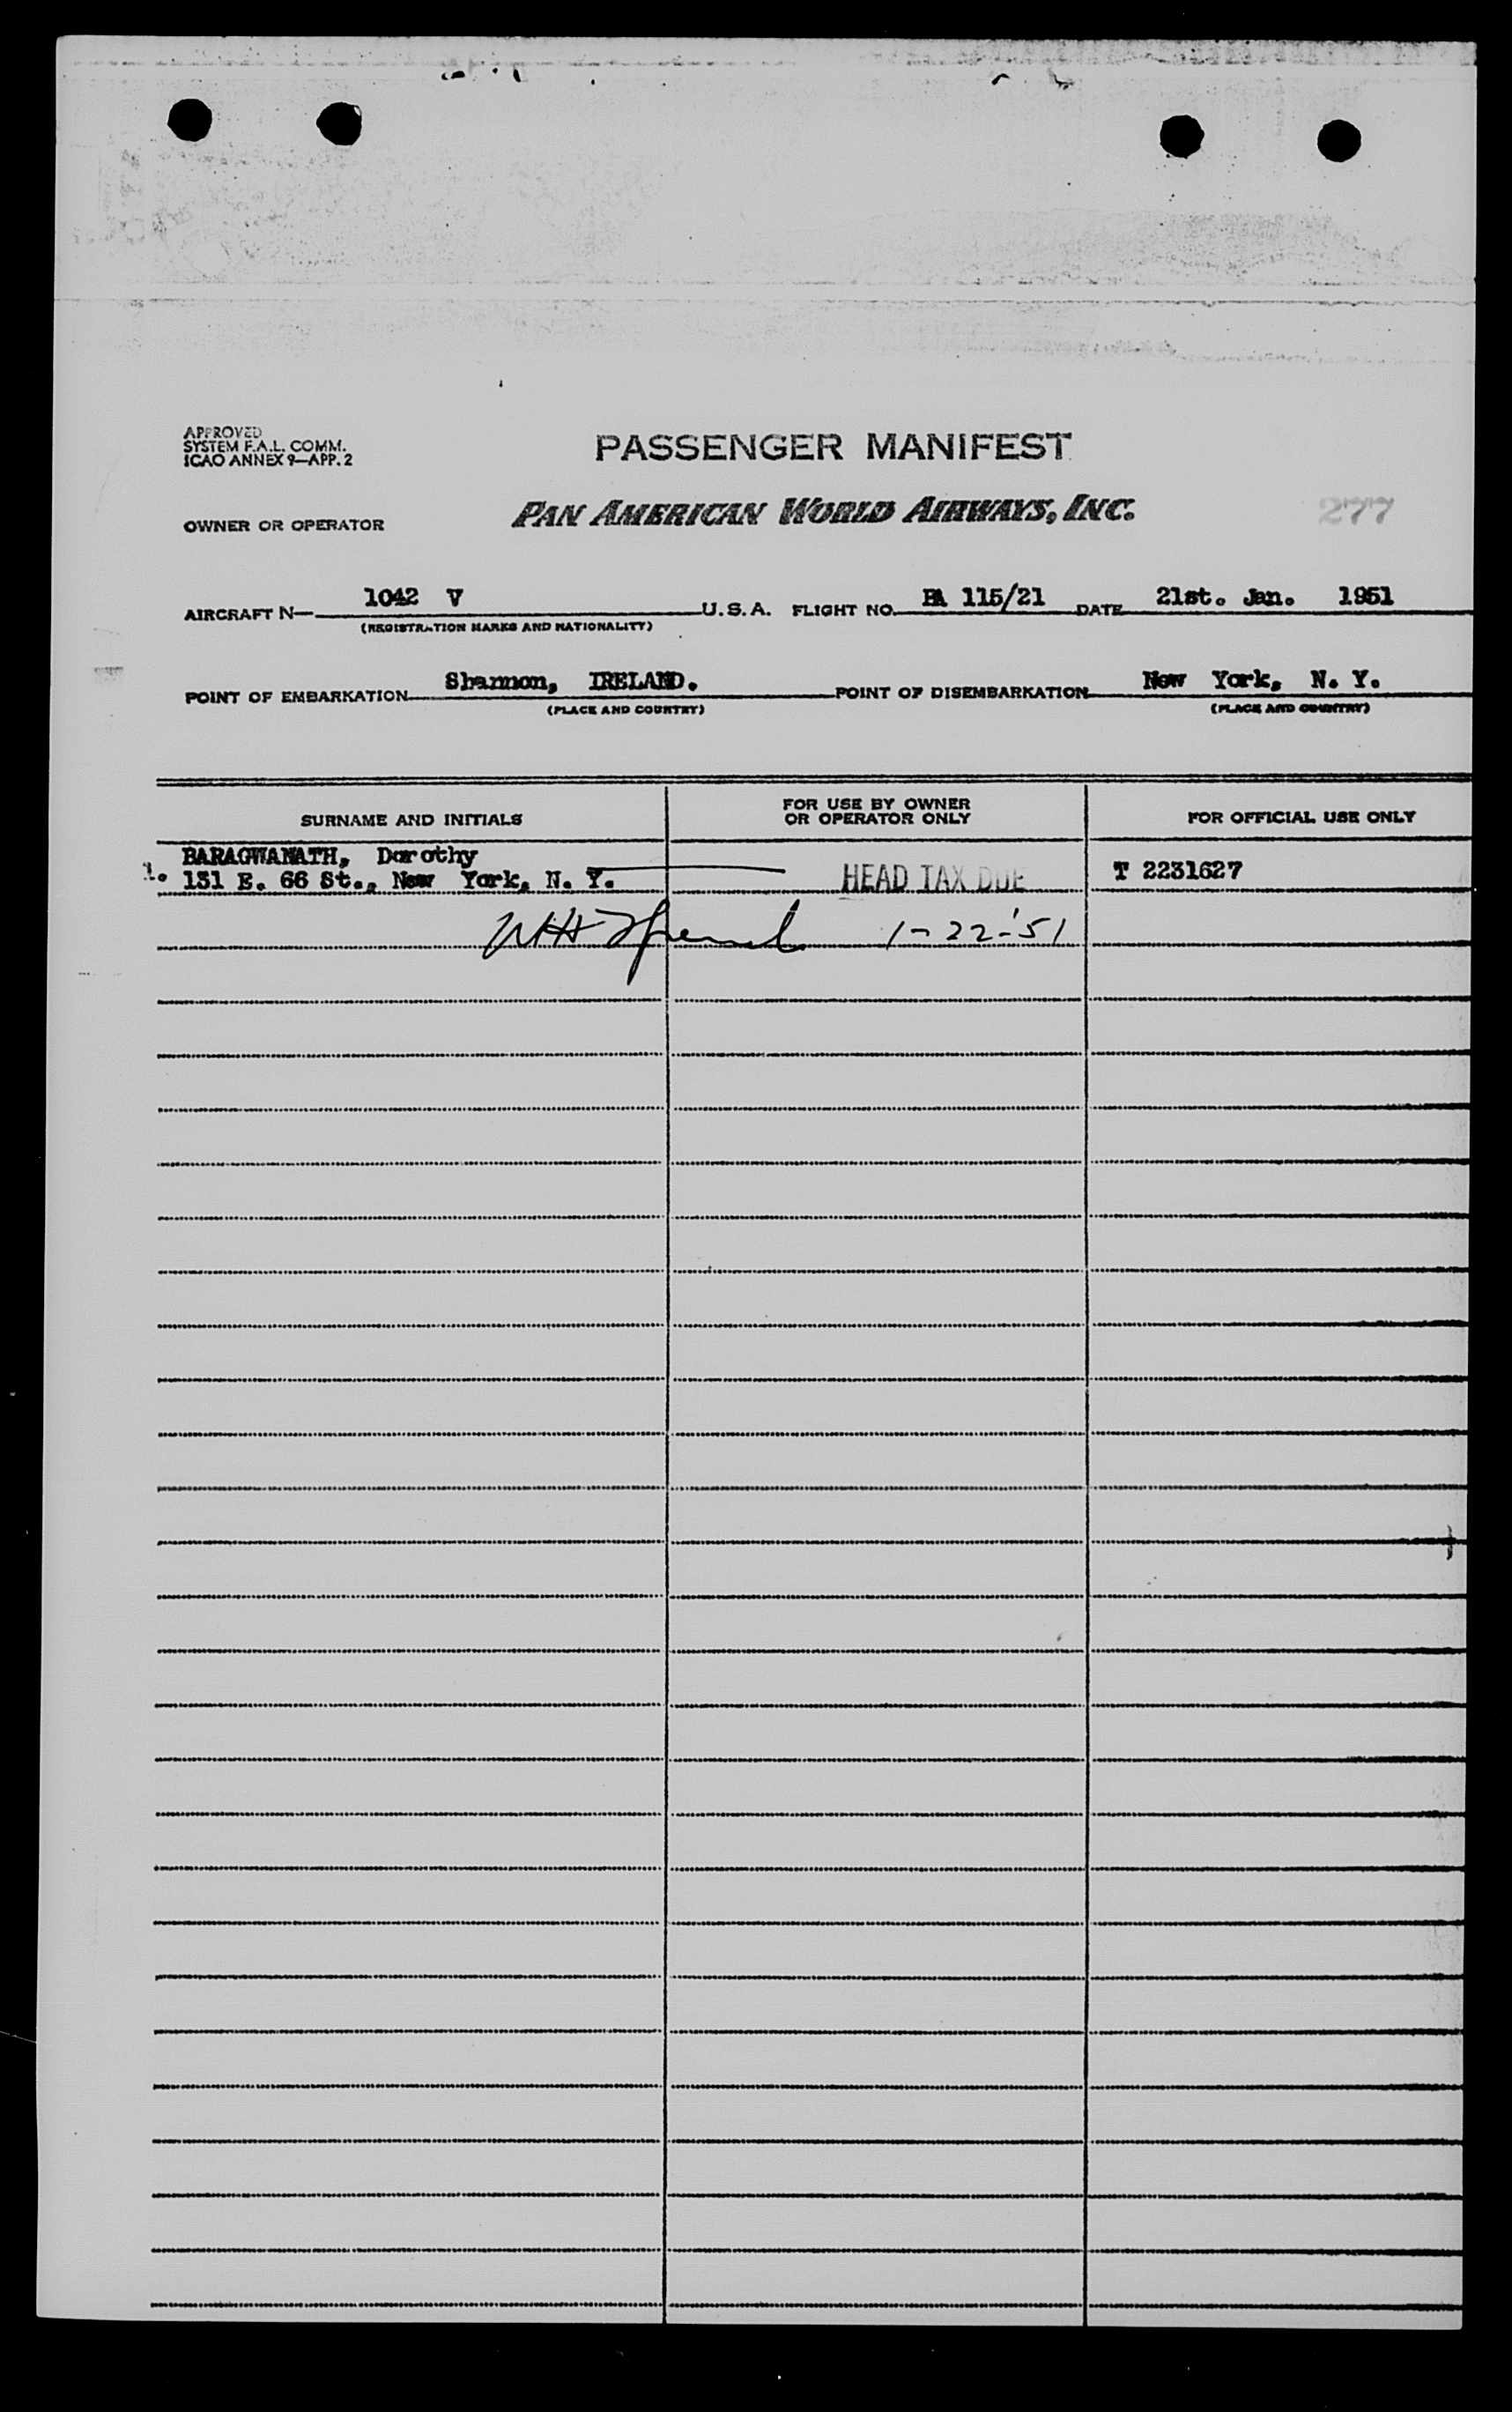 APPROVED
SYSTEM F.A.L. COMM.
ICAO ANNEX 9—APP. 2
PASSENGER MANIFEST
OWNER OR OPERATOR
PAN AMERICAN WORLD AIRWAYS, INC.
277
AIRCRAFT N— 1042 V U.S.A. FLIGHT NO. PA 115/21 DATE 21st. Jan. 1951
(REGISTRATION MARKS AND NATIONALITY)
POINT OF EMBARKATION Shannon, IRELAND. POINT OF DISEMBARKATION New York, N. Y.
(PLACE AND COUNTRY) (PLACE AND COUNTRY)
SURNAME AND INITIALS
FOR USE BY OWNER
OR OPERATOR ONLY
FOR OFFICIAL USE ONLY
1. BARAGWANATH, Dorothy
131 E. 66 St., New York, N. Y. HEAD TAX DUE T 2231627
1-22-'51